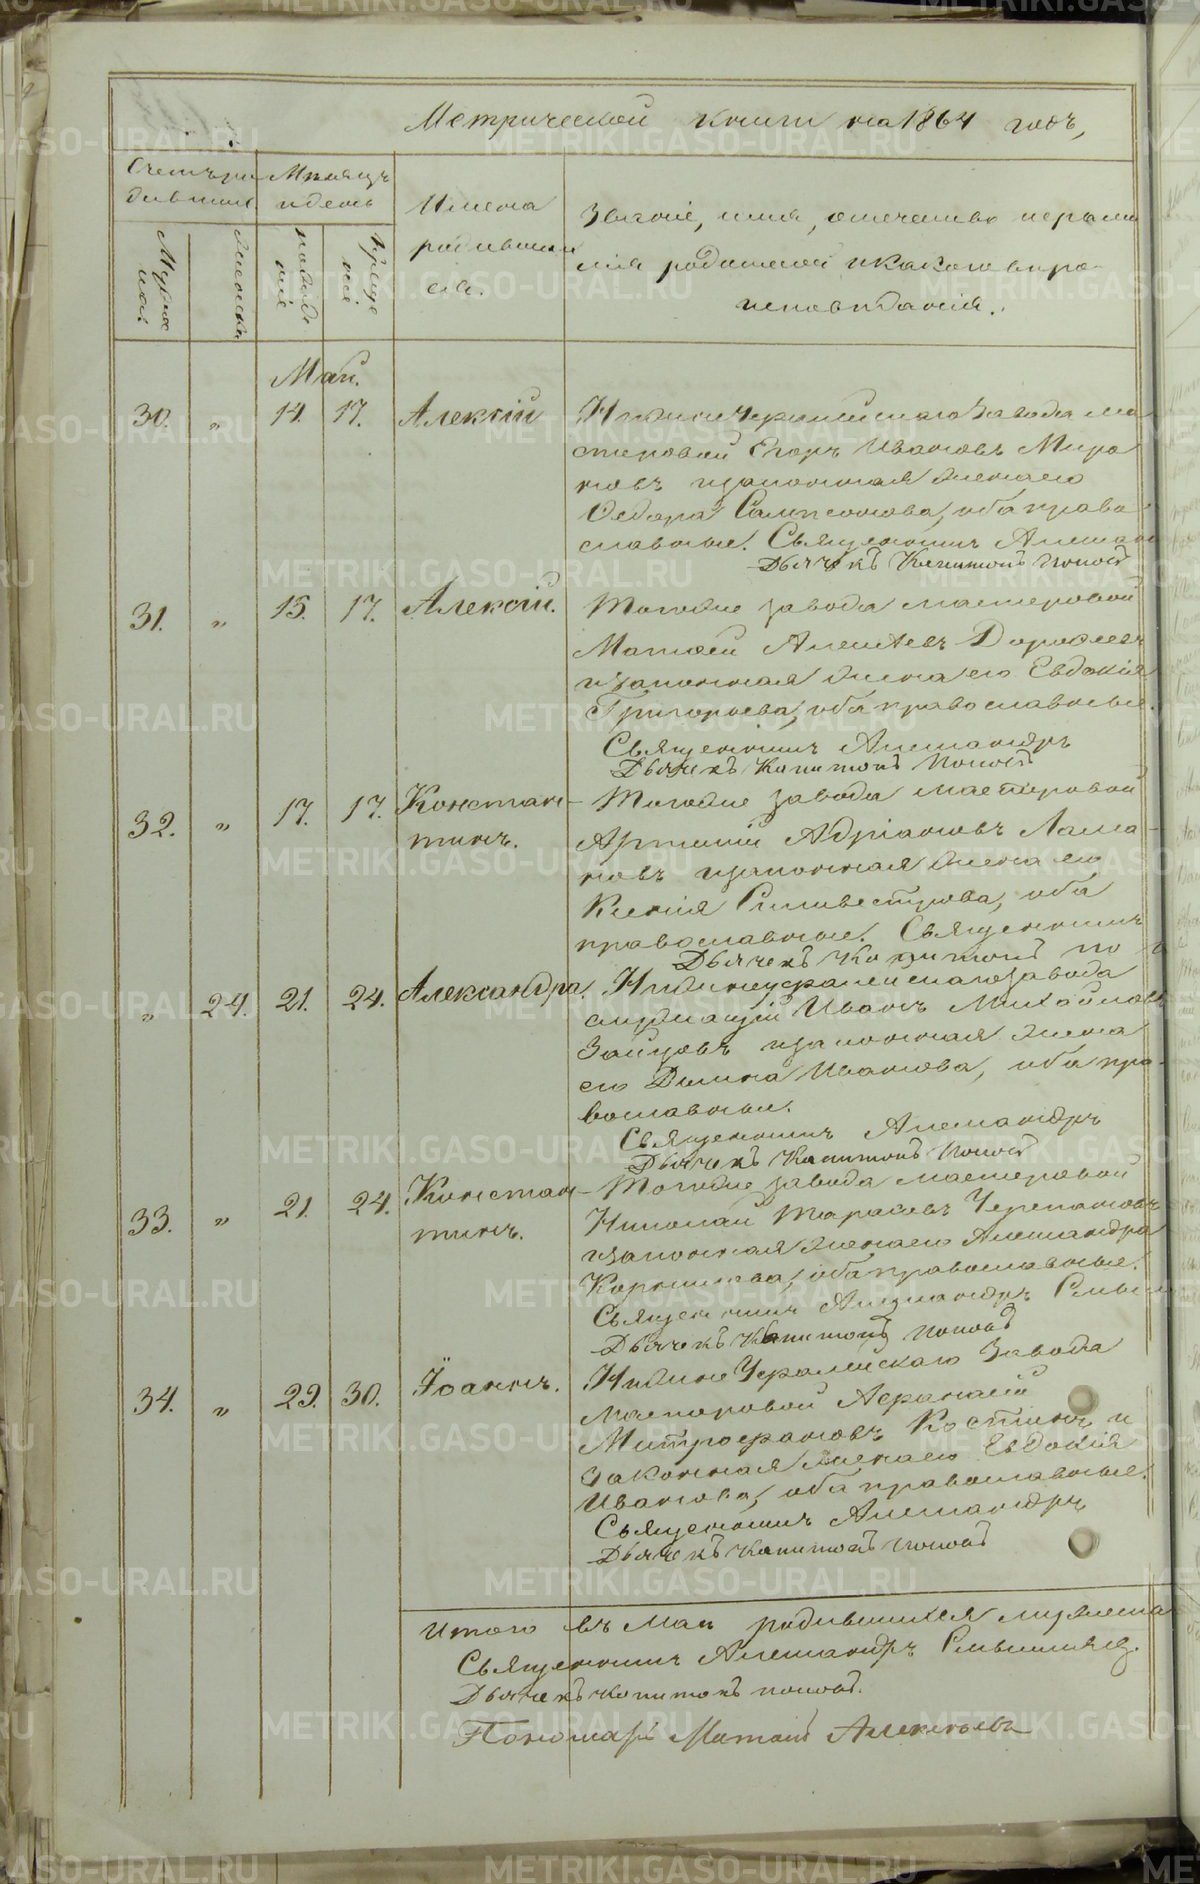 Метрической книги на 1864 годъ,
Счетъ ро Мѣсяцъ
дившихся и день
Имена
родивших
ся.
Званіе, имя, отчество и фами
лія родителей и какого вѣро
исповѣданія.
Мужеска
Женска
рожде
нія
креще
нія
Май.
30. „ 14. 17. Алексій Нижне Уфалейскаго Завода ма
стеровой Егоръ Ивановъ Миро
новъ и законная жена его
Ѳедора Сампсонова, оба право
славные. Священникъ Алексан
Дьячекъ Капитонъ Поповъ
31. „ 15. 17. Алексій. Тогоже завода мастеровой
Матѳей Алексѣевъ Дорофеевъ
и законная жена его Евдокія
Григорьева, оба православные.
Священникъ Александръ
Дьячекъ Капитонъ Поповъ
32. „ 17. 17. Констан- Тогоже завода мастеровой
тинъ. Артемій Адріановъ Лома-
новъ и законная жена его
Ксенія Силивестрова, оба
православные. Священникъ
Дьячекъ Капитонъ По
„ 24. 21. 24. Александра. Нижнеуфалейскагозавода
служащій Иванъ Михайловъ
Зайцовъ и законная жена
его Домна Иванова, оба пра-
вославные.
Священникъ Александръ
Дьячекъ Капитонъ Поповъ
33. „ 21. 24. Констан- Тогоже завода мастеровой
тинъ. Николай Тарасовъ Черепановъ
и законная жена его Александра
Корнилова, оба православные.
Священникъ Александръ
Дьячекъ Капитонъ Поповъ
34. „ 29. 30. Іоаннъ. Нижне Уфалейскаго Завода
мастеровой Афанасій
Митрофановъ Костинъ и
законная жена его Евдокія
Иванова, оба православные.
Священникъ Александръ
Дьячекъ Капитонъ Поповъ
Итого въ Маѣ родившихся мужеска
Священникъ Александръ
Дьячекъ Капитонъ Поповъ.
Пономарь Матѳій Алексѣевъ
METRIKI.GASO-URAL.RU